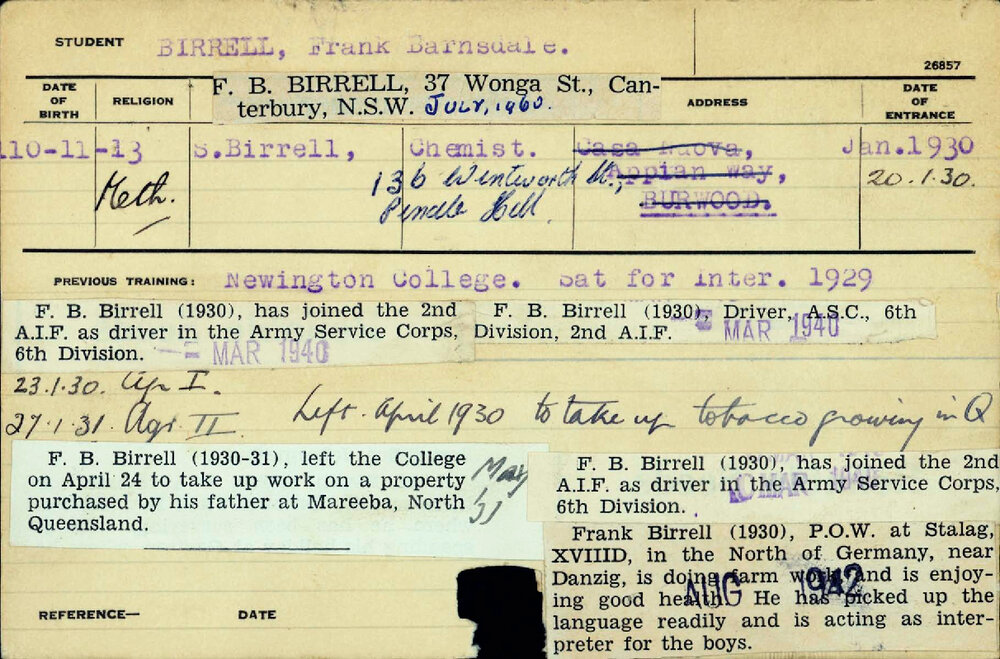 STUDENT BIRRELL, Frank Barnsdale.
26857
DATE OF BIRTH
RELIGION
F. B. BIRRELL, 37 Wonga St., Can-
terbury, N.S.W. JULY, 1960.
ADDRESS
DATE OF ENTRANCE
110-11-13 S.Birrell, Chemist. Casa Nuova, Jan.1930
Meth. 136 Wentworth St., Appian way, 20.1.30.
Pendle Hill BURWOOD.
PREVIOUS TRAINING: Newington College. Sat for Inter. 1929
F. B. Birrell (1930), has joined the 2nd
A.I.F. as driver in the Army Service Corps,
6th Division. - MAR 1940
F. B. Birrell (1930), Driver, A.S.C., 6th
Division, 2nd A.I.F. - MAR 1940
23.1.30. Agr I.
27.1.31. Agr. II Left April 1930 to take up tobacco growing in Q
F. B. Birrell (1930-31), left the College
on April 24 to take up work on a property
purchased by his father at Mareeba, North
Queensland.
May
31
F. B. Birrell (1930), has joined the 2nd
A.I.F. as driver in the Army Service Corps,
6th Division.
MAR
Frank Birrell (1930), P.O.W. at Stalag,
XVIIID, in the North of Germany, near
Danzig, is doing farm work and is enjoy-
ing good health. He has picked up the
language readily and is acting as inter-
preter for the boys.
AUG 1942
REFERENCE— DATE